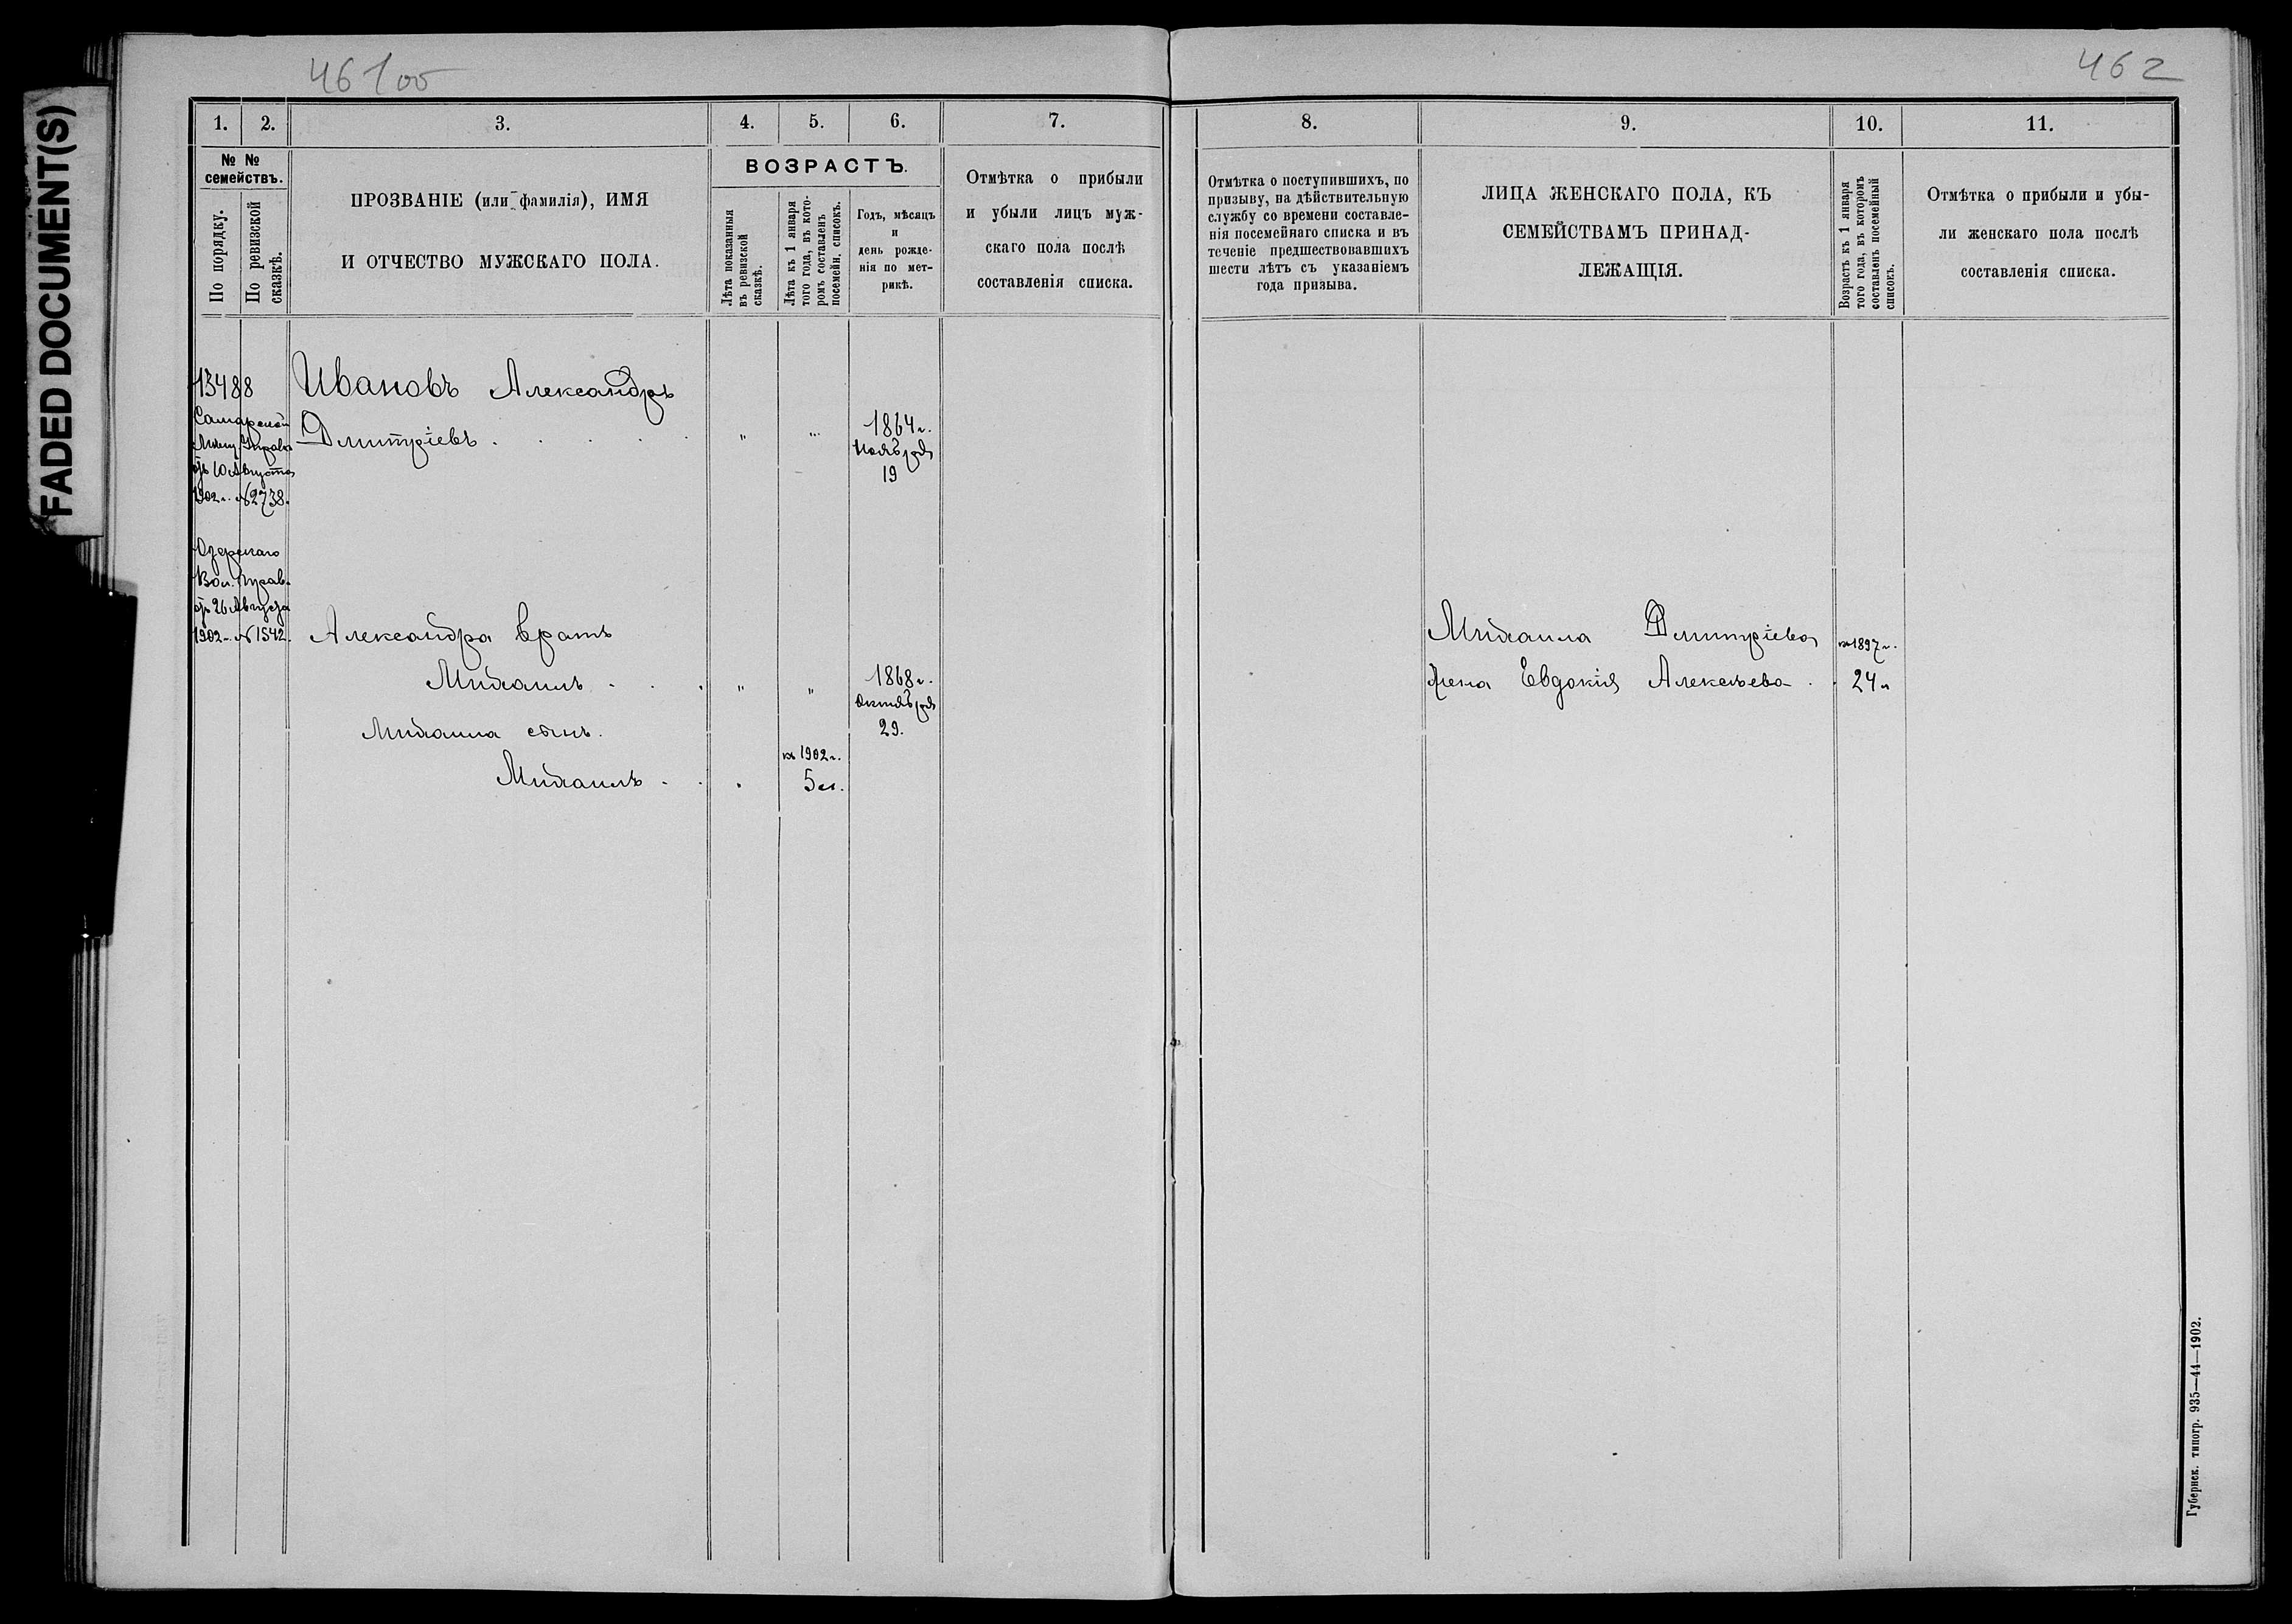 FADED DOCUMENT(S)
461об
1.
2.
3.
4.
5.
6.
7.
№ №
семействъ.
По порядку.
По ревизской
сказкѣ.
ПРОЗВАНІЕ (или фамилія), ИМЯ
И ОТЧЕСТВО МУЖСКАГО ПОЛА.
ВОЗРАСТЪ.
Лѣта показанныя
въ ревизской
сказкѣ.
Лѣта къ 1 января
того года, въ кото-
ромъ составленъ
посемейн. списокъ.
Годъ, мѣсяцъ
и
день рожде-
нія по мет-
рикѣ.
Отмѣтка о прибыли
и убыли лицъ муж-
скаго пола послѣ
составленія списка.
13488
Ивановъ Александръ
Дмитріевъ . . . . . " "
1864 г.
Ноября
19
Самарской
Мѣщ. Управы
отъ 10 Августа
1902 г. № 2738.
Озерскаго
Вол. Прав.
отъ 26 Августа
1902 г. № 1542.
Александра братъ
Михаилъ . . . " "
1868 г.
Октября
29.
Михаила сынъ.
Михаилъ . . "
къ 1902 г.
5 л.
462
8.
9.
10.
11.
Отмѣтка о поступившихъ, по
призыву, на дѣйствительную
службу со времени составле-
нія посемейнаго списка и въ
теченіе предшествовавшихъ
шести лѣтъ съ указаніемъ
года призыва.
ЛИЦА ЖЕНСКАГО ПОЛА, КЪ
СЕМЕЙСТВАМЪ ПРИНАД-
ЛЕЖАЩІЯ.
Возрастъ къ 1 января
того года, въ которомъ
составленъ посемейный
списокъ.
Отмѣтка о прибыли и убы-
ли женскаго пола послѣ
составленія списка.
Михаила Дмитріева
жена Евдокія Алексѣева .
къ 1897 г.
24 л
Губернск. типогр. 935—44—1902.